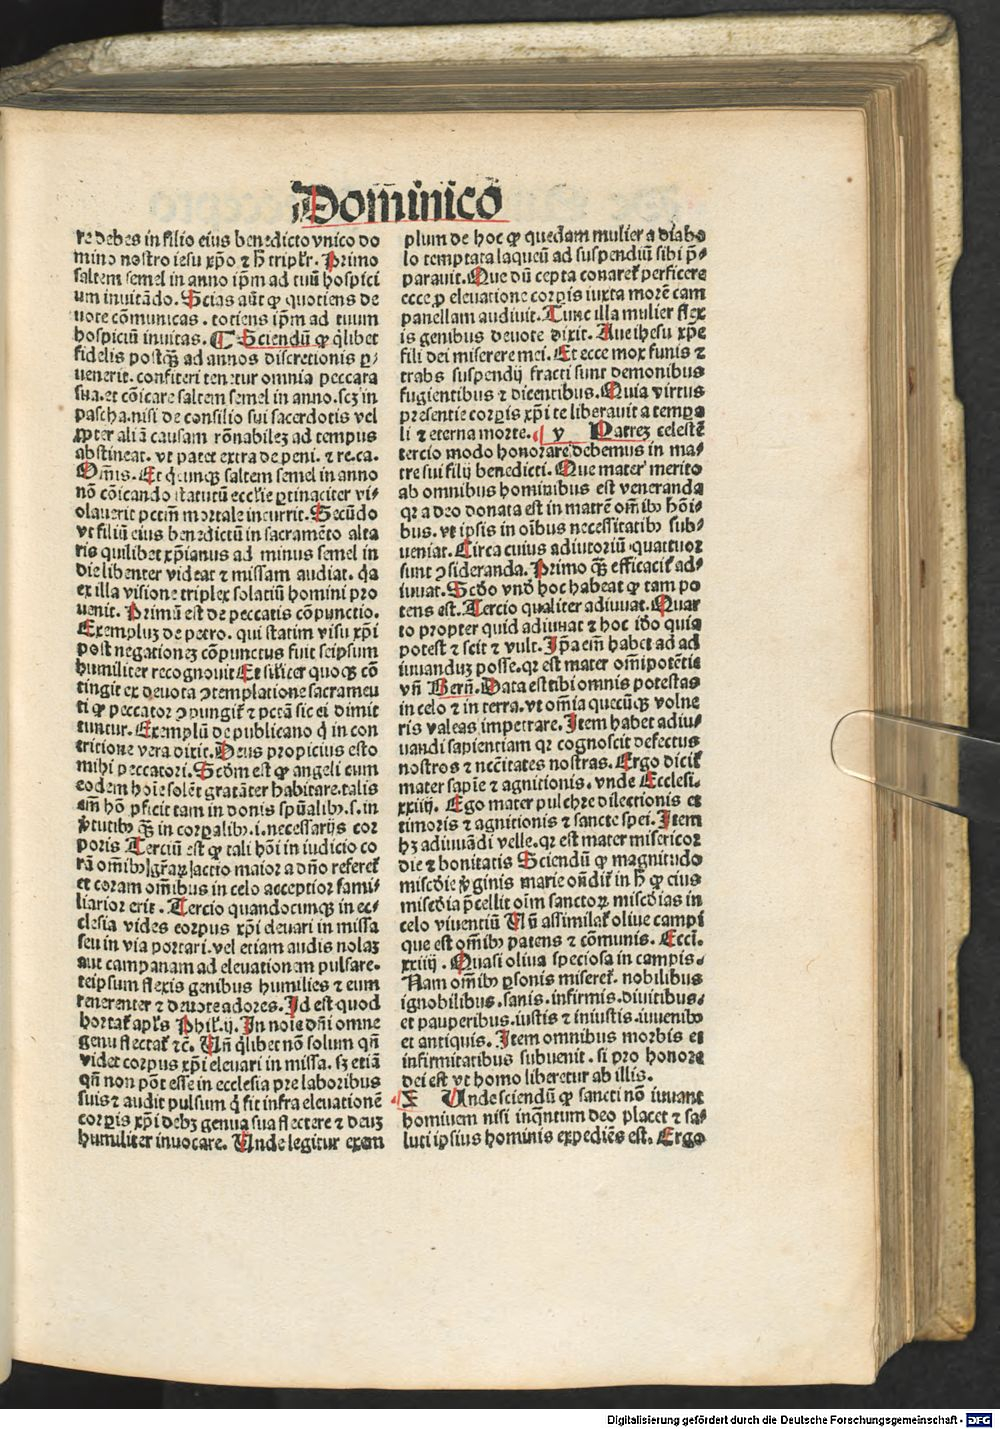 Dom̄inico
re debes in filio eius benedicto vnico do
mino nostro iesu xp̄o ⁊ h̄ triplr̄. Primo
saltem semel in anno ip̄m ad tuū hospici
um inuitādo. Scias aūt ꝙ quotiens de
uote cōmunicas . totiens ip̄m ad tuum
hospiciū inuitas. ¶ Sciendū ꝙ q̄libet
fidelis postq̄ȝ ad annos discretionis ꝑ⸗
uenerit. confiteri tenetur omnia peccata
sua. et cōicare saltem semel in anno. scȝ in
pascha. nisi de consilio sui sacerdotis vel
ꝓpter aliā causam rōnabileȝ ad tempus
abstineat. vt patet extra de peni. ⁊ re. ca.
Om̄is. Et q̄cunqȝ saltem semel in anno
nō cōicando statutū eccl̄ie ꝑtinaciter vi⸗
olauerit pctm̄ mortale incurrit. Secūdo
vt filiū eius benedictū in sacramēto alta
ris quilibet xp̄ianus ad minus semel in
die libenter videat ⁊ missam audiat. q̄a
ex illa visione triplex solatiū homini pro
uenit. Primū est de peccatis cōpunctio.
Exempluȝ de petro. qui statim visu xp̄i
post negationeȝ cōpunctus fuit seipsum
humiliter recognouit Et sil̄icer quoqȝ cō
tingit ex deuota ↄtemplatione sacrameu
ti ꝙ peccator ↄpungit̄ ⁊ pctā sic ei dimit
tuntur. Exemplū de publicano q̄ in con
tritione vera dixit. Deus propicius esto
mihi peccatori. Scōm est ꝙ angeli cum
eodem hoīe solēt gratāter habitare. talis
em̄ hō ꝓficit tam in donis spūalibꝰ. s. in
v̄tutibꝰ q̄ȝ in corꝑalibꝰ. i. necessarijs cor
poris Terciū est ꝙ tali hōi in iudicio co
rā om̄ibꝰ gr̄aꝝ actio maior a dn̄o referet̄
et coram om̄ibus in celo acceptior fami⸗
liarior erit . Tercio quandocunqȝ in ec⸗
clesia vides corpus xp̄i leuari in missa
seu in via portari. vel etiam audis nolaȝ
aut campanam ad eleuationem pulsare.
teipsum flexis genibus humilies ⁊ eum
reuerenter ⁊ deuote adores. Id est quod
hortat̄ apl̄s Phil̄. ij. In noīe dn̄i omne
genu flectat̄ ⁊c̄. Un̄ q̄libet nō solum qn̄
videt corpus xp̄i eleuari in missa. sȝ etiā
qn̄ non pōt esse in ecclesia pre laboribus
suis ⁊ audit pulsum q̄ fit infra eleuationē
corꝑis xp̄i debȝ genua sua flectere ⁊ deuȝ
humiliter inuocare. Unde legitur exem
plum de hoc ꝙ quedam mulier a diabo
lo temptata laqueū ad suspendiū sibi p̄⸗
parauit. Que dū cepta conaret̄ perficere
ecce ꝓ eleuatione corꝑis iuxta morē cam
panellam audiuit. Tunc illa mulier flex
is genibus deuote dixit. Aue ihesu xp̄e
fili dei miserere mei. Et ecce mox funis ⁊
trabs suspendij fracti sunt demonibus
fugientibus ⁊ dicentibus. Quia virtus
presentie corꝑis xp̄i te liberauit a tempꝑa
li ⁊ eterna morte. ¶ y Patreȝ celestē
tercio modo honorare debemus in ma⸗
tre sui filij benedicti. Que mater merito
ab omnibus hominibus est veneranda
qꝛ a deo donata est in matrē om̄ibꝰ hōi⸗
bus. vt ipsis in oībus necessitatibꝰ sub⸗
ueniat. Circa cuius adiutoriū quattuor
sunt ↄsideranda. Primo q̄ȝ efficacit̄ ad⸗
iuuat. Scōo vnd̄ hoc habeat ꝙ tam po
tens est. Tercio qualiter adiuuat. Quar
to propter quid adiuuat ⁊ hoc iōo quia
potest ⁊ scit ⁊ vult. Ip̄a em̄ habet ad ad
iuuanduȝ posse. qꝛ est mater om̄ipotētis
vn̄ Bern̄. Data est tibi omnis potestas
in celo ⁊ in terra. vt om̄ia quecūqȝ volue
ris valeas impetrare. Item habet adiu⸗
uandi sapientiam qꝛ cognoscit defectus
nostros ⁊ nec̄itates nostras. Ergo dicit̄
mater sapie ⁊ agnitionis. vnde Ecclesi.
xxiiij. Ego mater pulchre dilectionis et
timoris ⁊ agnitionis ⁊ sancte spei. Item
hȝ adiuuādi velle. qꝛ est mater misericor
die ⁊ bonitatis Sciendū ꝙ magnitudo
miscōie v̄ginis marie on̄dit̄ in h̄ ꝙ eius
miscōia p̄cellit oīm sanctoꝝ miscōias in
celo viuentiū Un̄ assimilat̄ oliue campi
que est om̄ibꝰ patens ⁊ cōmunis. Eccī.
xxiiij . Quasi oliua speciosa in campis.
Nam om̄ibꝰ ꝑsonis miseret̄. nobilibus
ignobilibus. sanis. infirmis. diuitibus.
et pauperibus. iustis ⁊ iniustis. iuuenibꝰ
et antiquis. Item omnibus morbis et
infirmitatibus subuenit . si pro honore
dei est vt homo liberetur ab illis.
¶ Z Unde sciendū ꝙ sancti nō iuuant
hominem nisi inq̄ntum deo placet ⁊ sa⸗
luti ipsius hominis expediēs est. Ergo
Digitalisierung gefördert durch die Deutsche Forschungsgemeinschaft - DFG